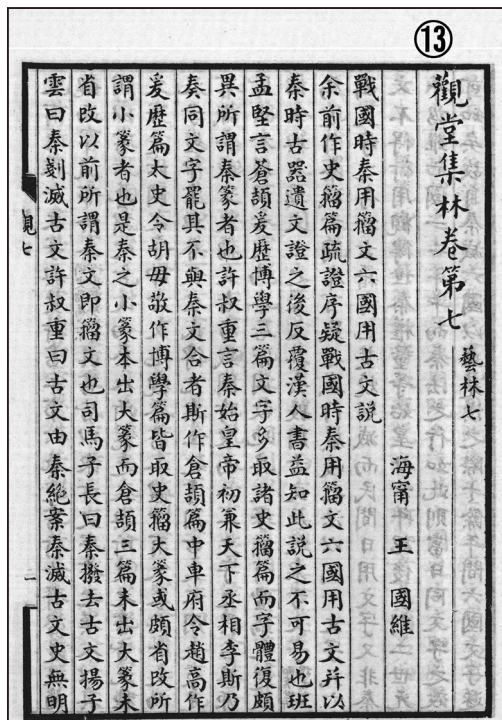 ⑬
觀堂集林卷第七
藝林七
海甯 王 國維
戰國時秦用籀文六國用古文說
余前作史籀篇疏證序疑戰國時秦用籀文六國用古文幷以
秦時古器遺文證之後反覆漢人書益知此說之不可易也班
孟堅言蒼頡爰歷博學三篇文字多取諸史籀篇而字體復頗
異所謂秦篆者也許叔重言秦始皇帝初兼天下丞相李斯乃
奏同文字罷其不與秦文合者斯作倉頡篇中車府令趙高作
爰歷篇太史令胡毋敬作博學篇皆取史籀大篆或頗省改所
謂小篆者也是秦之小篆本出大篆而倉頡三篇未出大篆未
省改以前所謂秦文即籀文也司馬子長曰秦撥去古文揚子
雲曰秦剗滅古文許叔重曰古文由秦絕案秦滅古文史無明
觀七
一